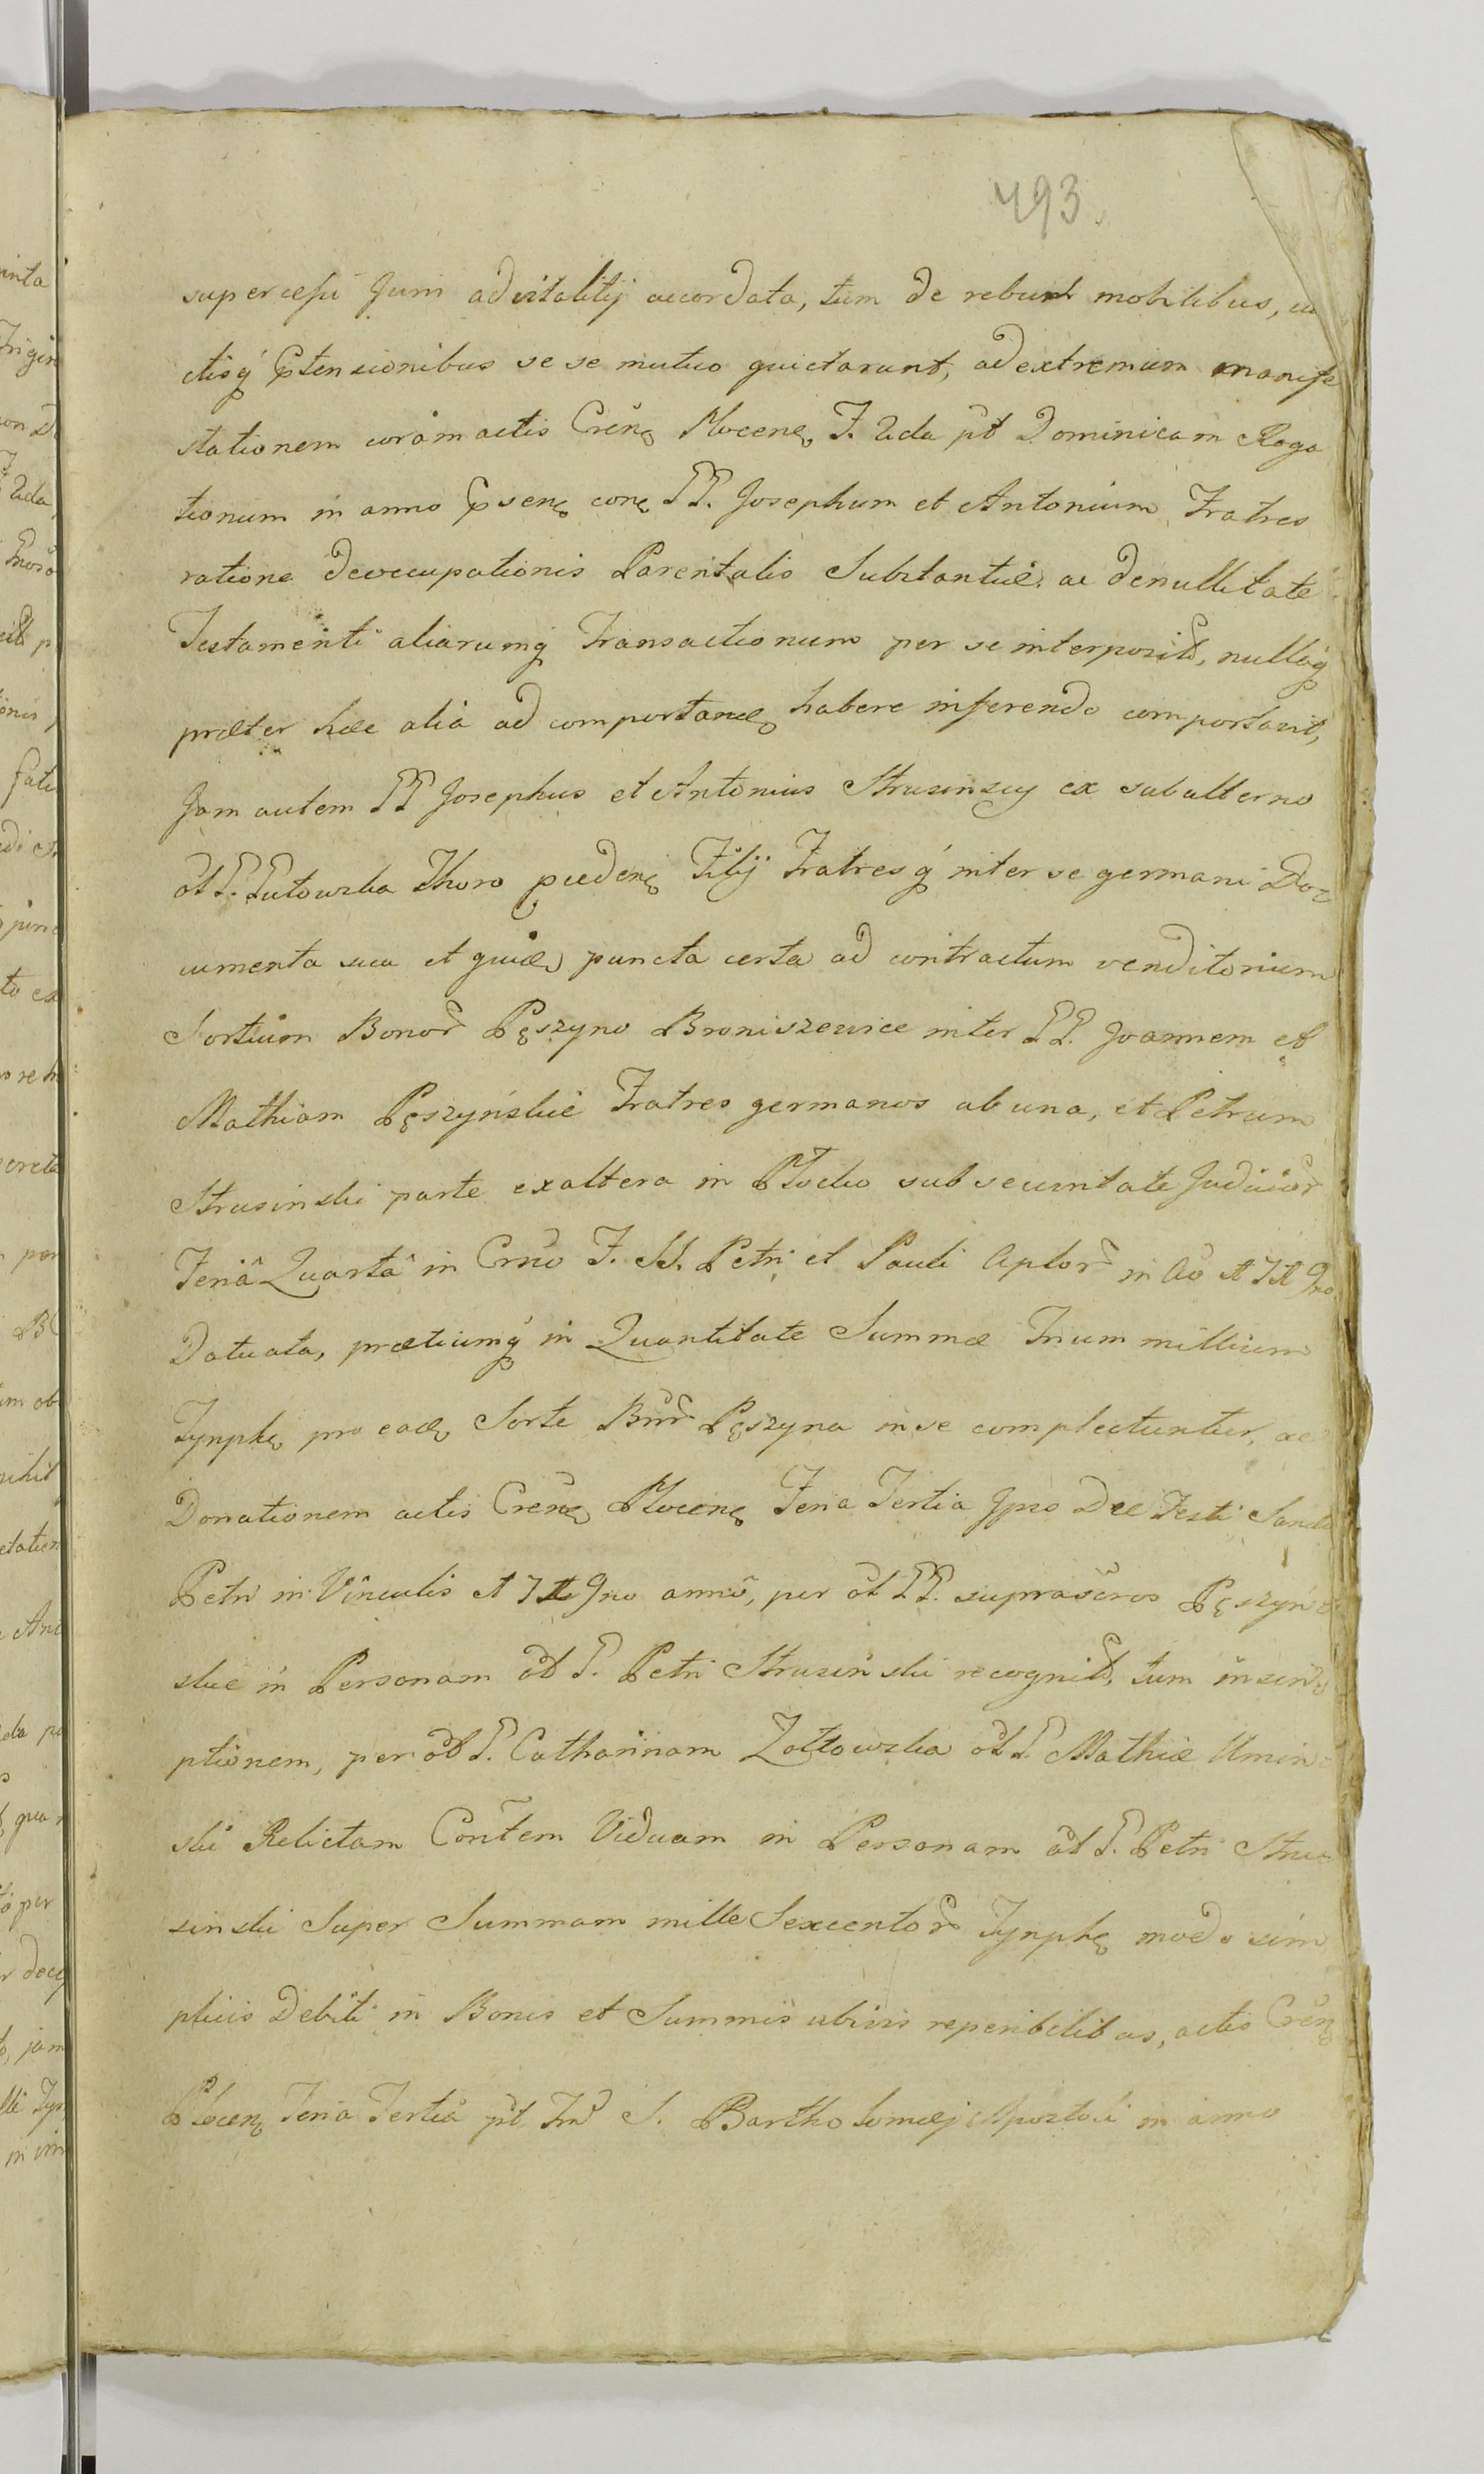 493.
supercessi Juri advitalitÿ accordata, tum de rebus mobilibus,
ctisq́ Prtensionibus se se mutuo quietarunt, ad extremum manife
stationem coram actis Crēnę Plocenę F. 2da pt̄ Dominicam Roga
tionum in anno Prsenę conę PP. Josephum et Antonium Fratres
ratione deoccupationis Parentalis Substantiæ. ac de nullitate
Testamenti aliarumq́ Transactionum per se interposit, nullaq́
præter hæc alia ad comportandę habere inferendo comportavit,
Jam autem PP Josephus et Antonius Strusinscy ex subalterno
ōl P. Lutowska Thoro Filÿ Fratresq́ inter se germani Do-
cumenta sua et quidę puncta certa ad contractum venditorium
Sortium Bonor Pęszyno Broniszewice inter PP. Joannem et
Mathiam Pęszyńskie Fratres germanos ab una, et Petrum
Strusinski parte ex altera in Płocko sub securitate Judicior
Feriâ Quartâ in Crn̄o F. SS. Petri et Pauli Aplor in Ao
Datuata, prætiumq́ in Quantitate Summæ Trium millium
Tynphę pro eadę Sorte Bnr̄ Pęszyna in se complectuntur, ac
Donationem actis Crēnę Plocenę Feria Tertia Ipso Die Festi Sancti
Petri in Vinculis anno, per ōl PP. suprascros Pęszyń
skie in Personam ōl P. Petri Strusiński recognit, tum inscri
ptionem, per ōl P. Catharinam Zołtowska ōl P. Mathiæ Umin
ski Relictam Cont̄em Viduam in Personam ōl P. Petri Stru
sinski Super Summam mille Sexcentor Tynphę modo sim
plicis Debiti in Bonis et Summis ubivis reperibilibus, actis Crēnę
Plocenę Feria Tertiâ pt̄ S. Bartholomæj Apostoli in anno